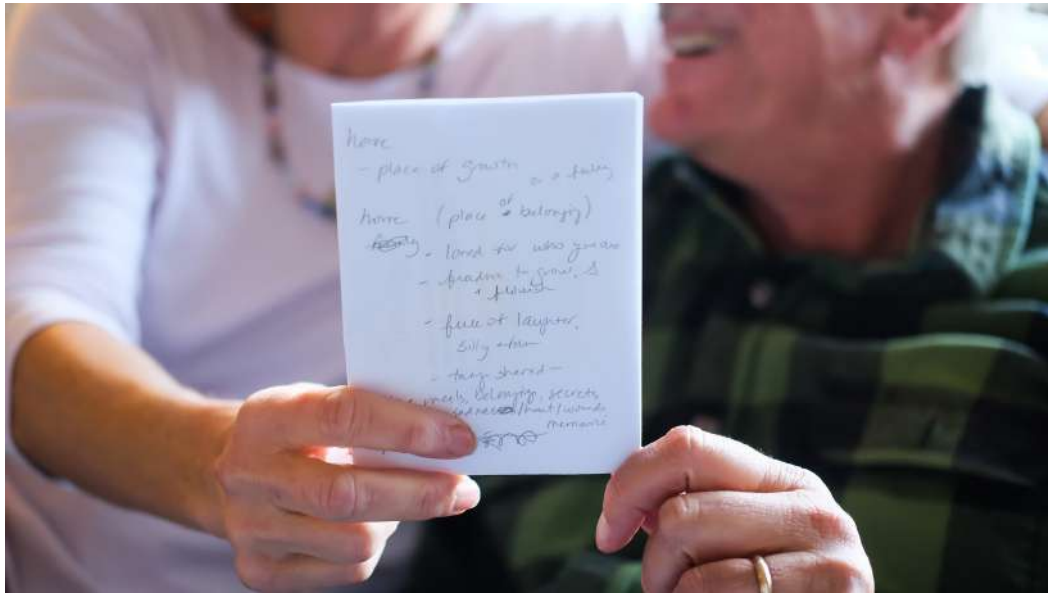 home
- place of growth
or a feeling
home (place of belonging)
- loved for who you are
- freedom to grow,
+ flourish
- full of laughter,
silly
- shared -
meals, belonging, secrets
/hurt/wounds
memories